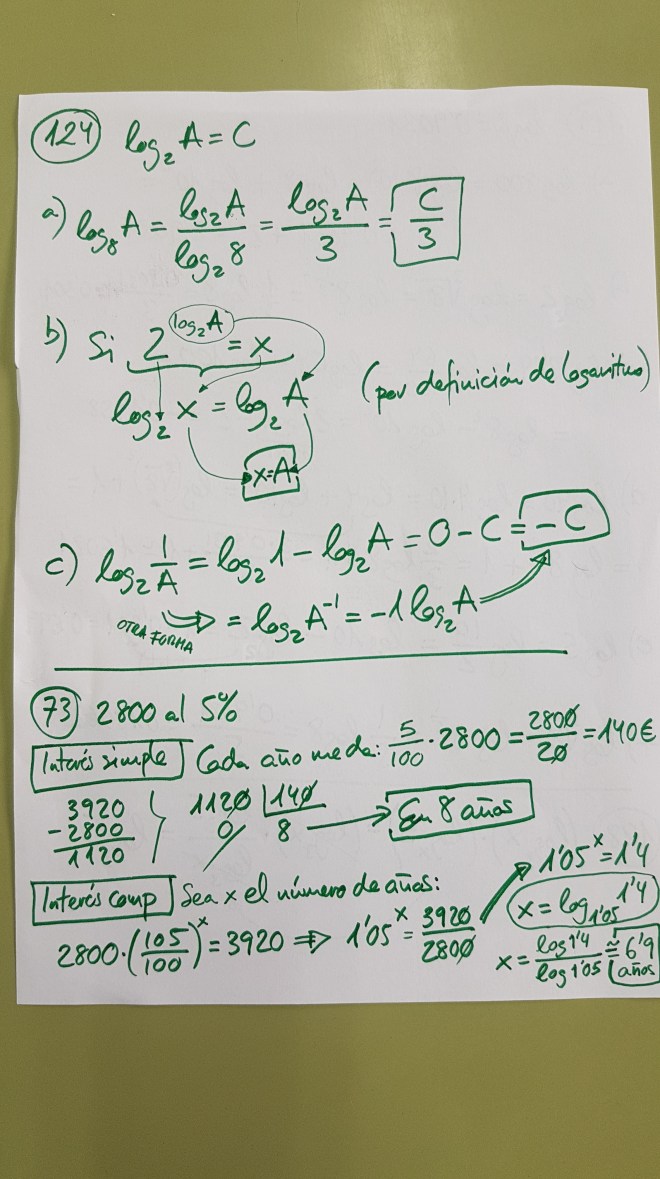 124 log₂ A = C
a) log₈ A = log₂ A / log₂ 8 = log₂ A / 3 = C / 3
b) Si 2^(log₂ A) = x
log₂ x = log₂ A (por definición de logaritmo)
x = A
c) log₂ 1/A = log₂ 1 - log₂ A = 0 - C = - C
OTRA FORMA ⇒ = log₂ A⁻¹ = -1 log₂ A
73 2800 al 5%
Interés simple Cada año me da: 5/100 · 2800 = 2800/20 = 140€
3920 1120 | 140
- 2800 0 8 → En 8 años
1120
Interés comp Sea x el número de años:
2800 · (105/100)^x = 3920 ⇒ 1'05^x = 3920/2800
1'05^x = 1'4
x = log₁'₀₅ 1'4
x = log 1'4 / log 1'05 ≅ 6'9 años